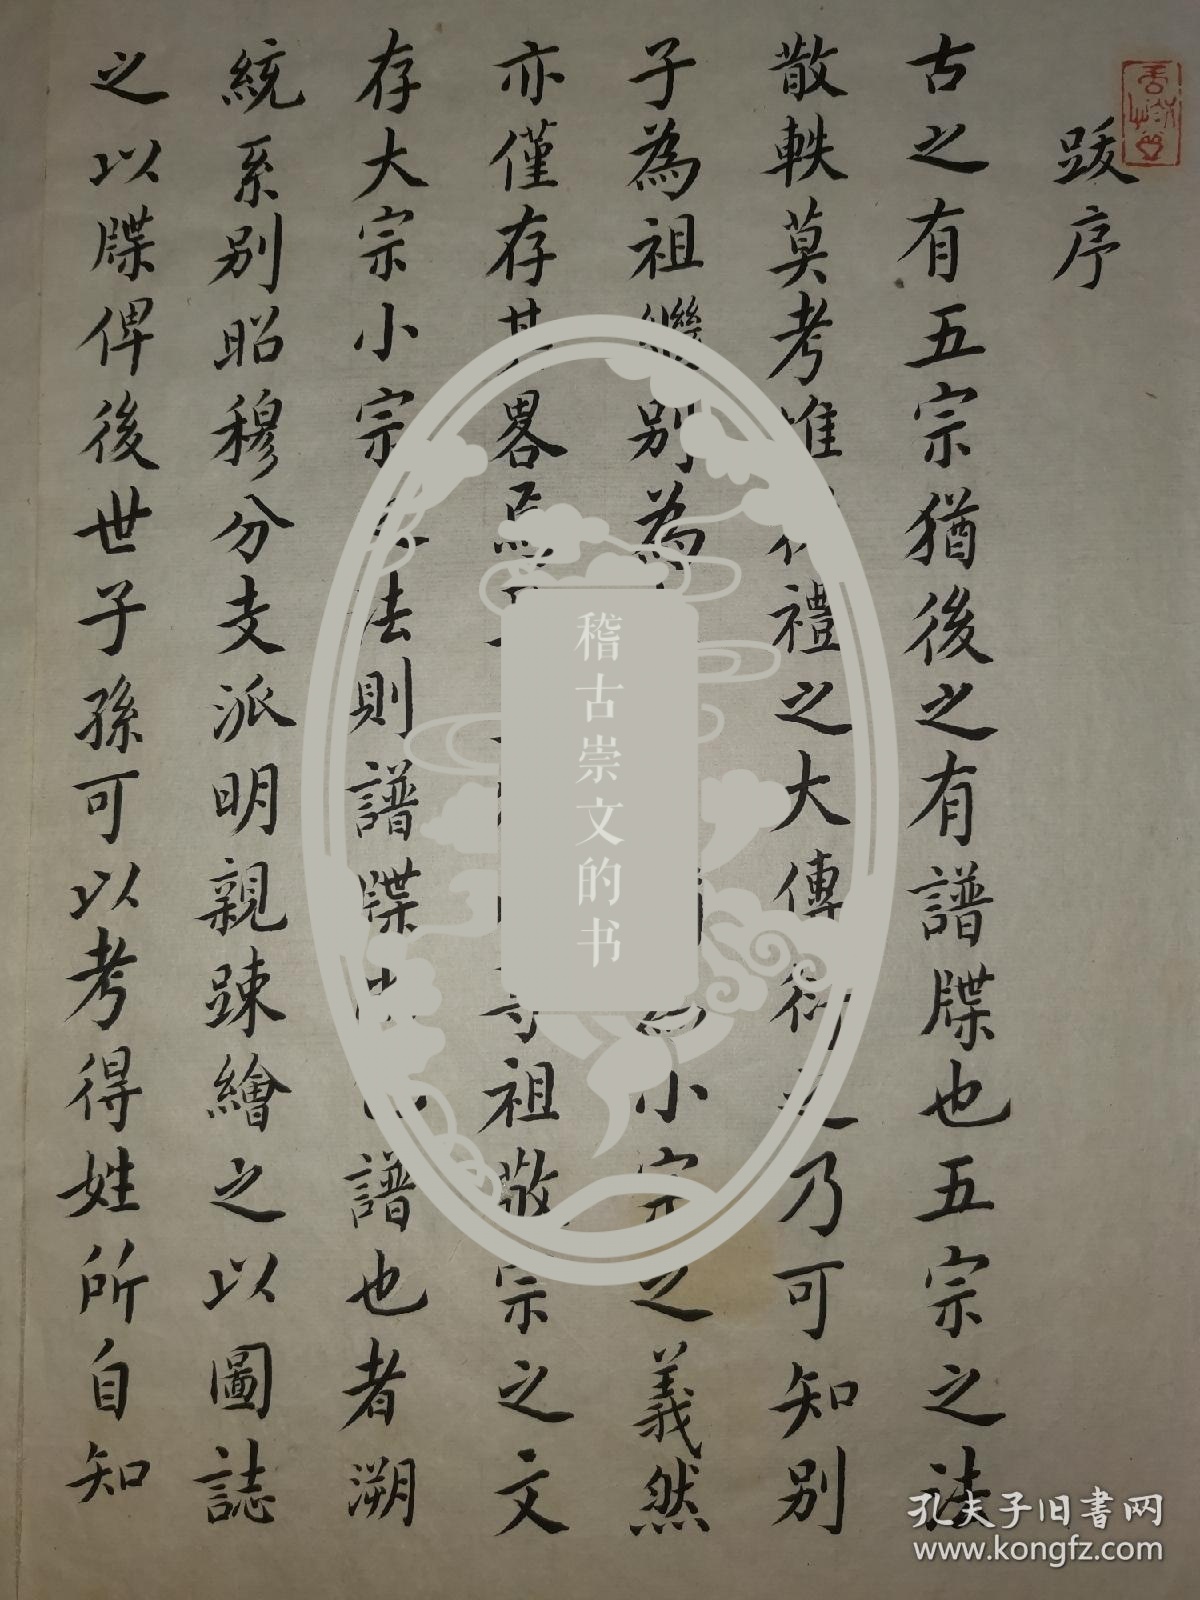 跋序
古之有五宗猶後之有譜牒也五宗之法
散軼莫考惟 禮之大傳 之乃可知別
子為祖繼別為 小宗之義然
亦僅存其畧焉 祖敬宗之文
存大宗小宗 法則譜牒 譜也者溯
統系别昭穆分支派明親踈繪之以圖誌
之以牒俾後世子孫可以考得姓所自知
稽古崇文的书
孔夫子旧书网
www.kongfz.com